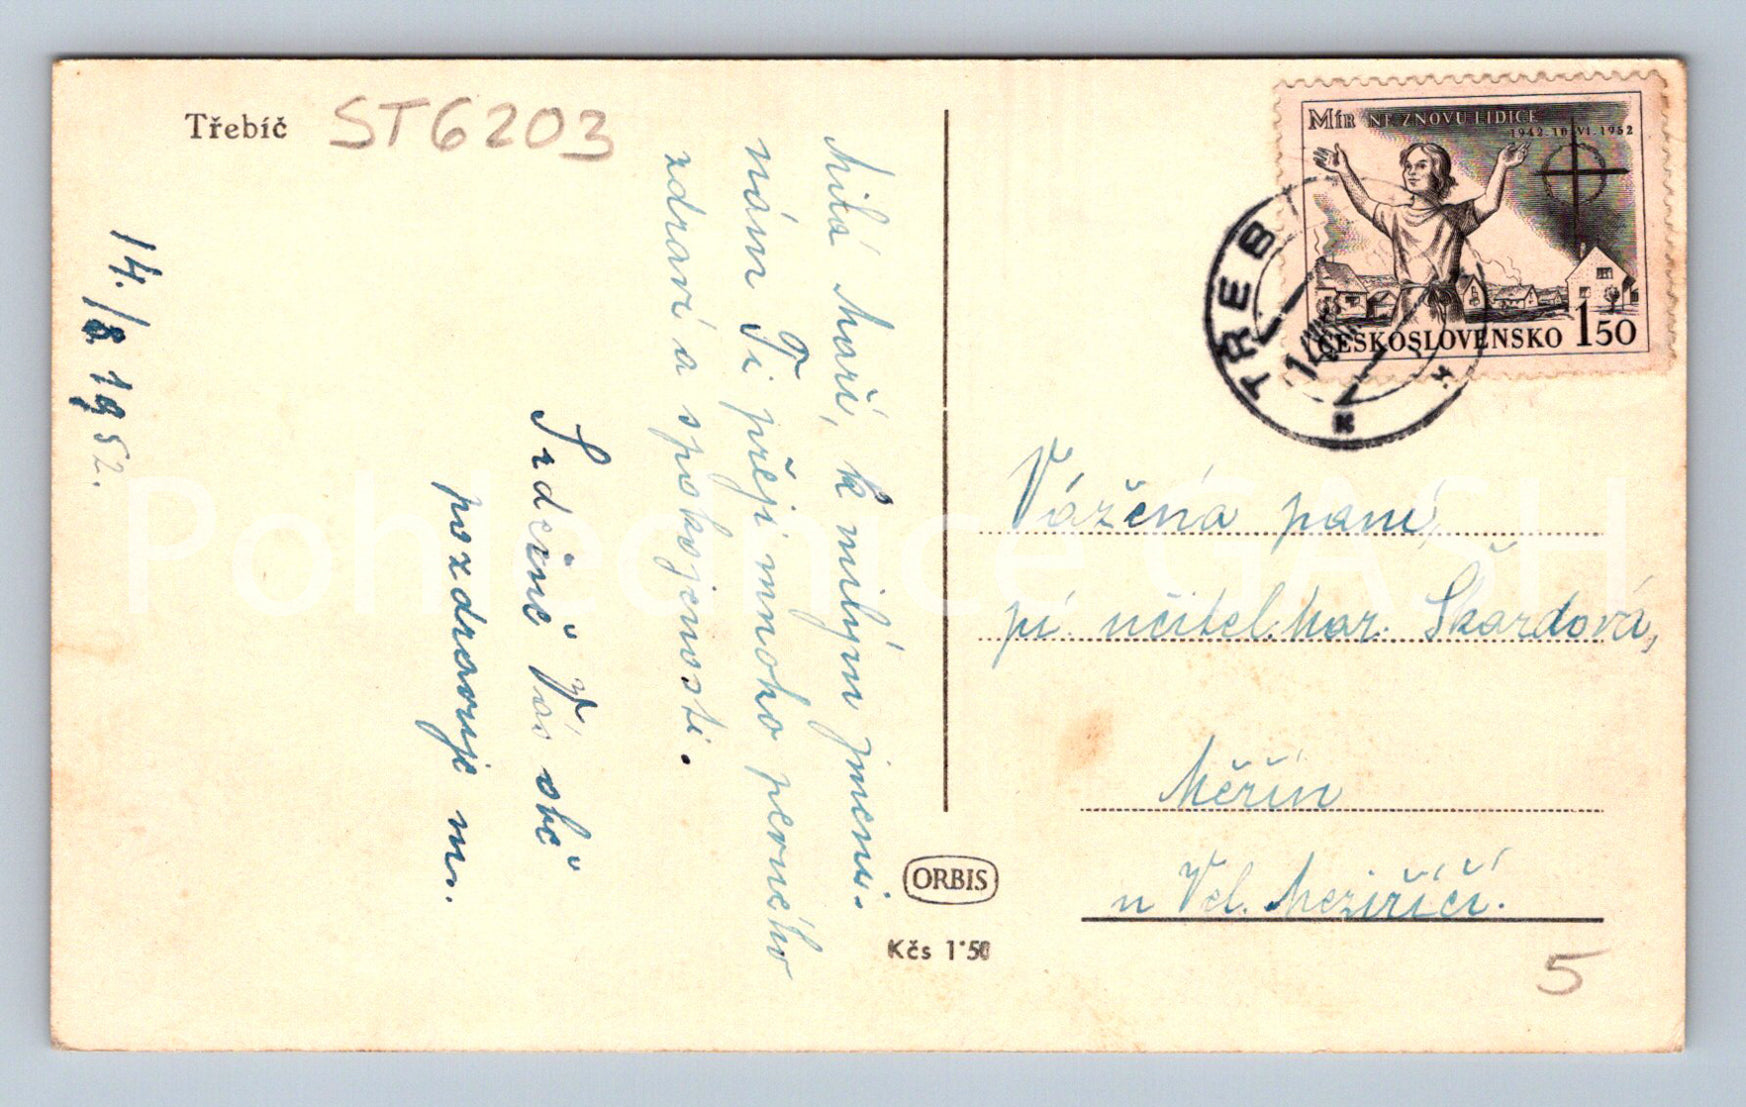 Třebíč
ST6203
14./8. 1952.
Milá Maři, k milým jmeni-
nám Ti přeji mnoho pevného
zdraví a spokojenosti.
Srdečně Vás obě
pozdravuje m.
MÍR NE ZNOVU LIDICE
1942 10.VI.1952
ČESKOSLOVENSKO 150
TŘEB
Vážená paní,
pí. učitel. Mar. Škardová,
Měřín
u Vel. Meziříčí.
ORBIS
Kčs 1·50
5
Pohlednice GASH